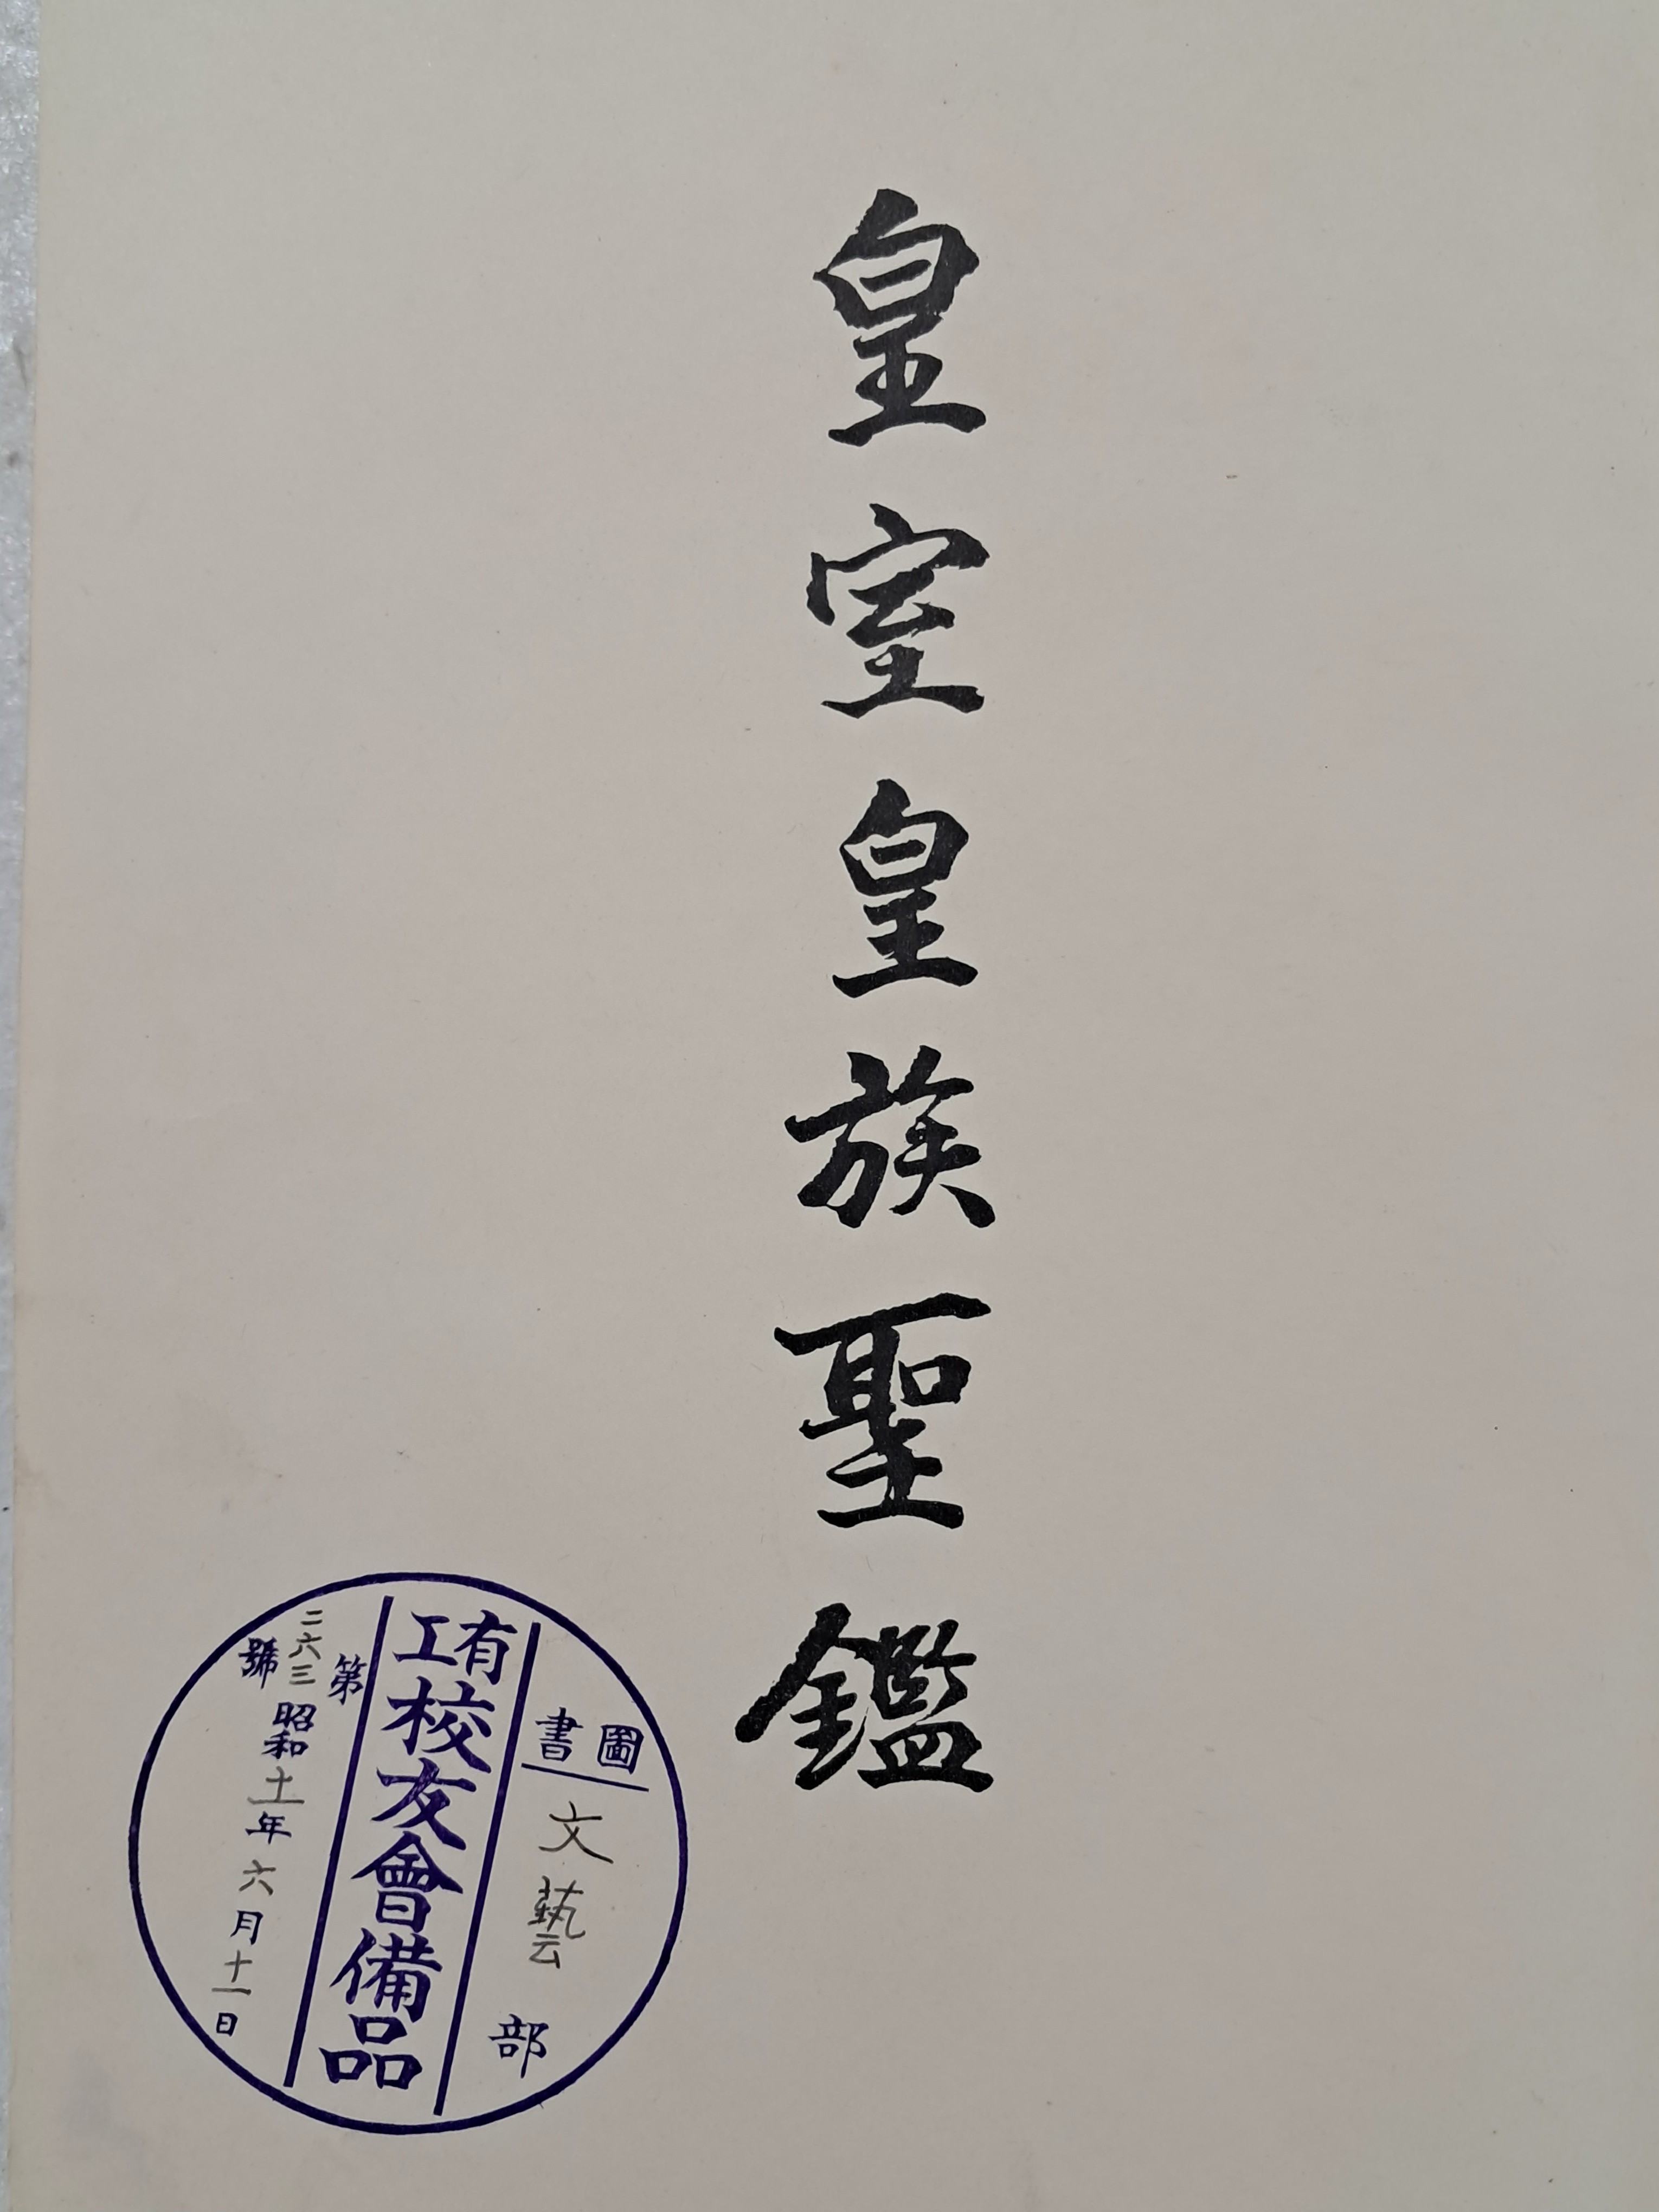 皇室皇族聖鑑
圖書
文藝部
有工校友會備品
第二六三號
昭和十一年六月十一日